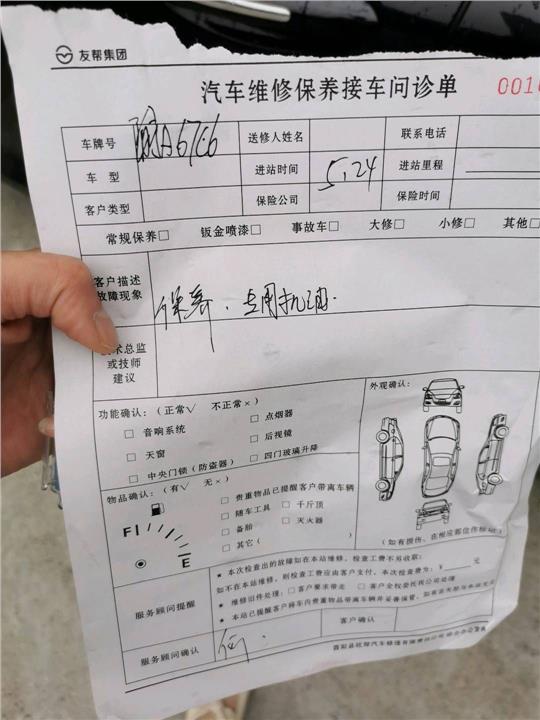 友帮集团
汽车维修保养接车问诊单 0010
车牌号 67E6 送修人姓名 联系电话
车 型 进站时间 5.24 进站里程
客户类型 保险公司 保险时间
常规保养□ 钣金喷漆□ 事故车□ 大修□ 小修□ 其他□
客户描述
故障现象
保养. 专用机油.
术总监
或技师
建议
功能确认:(正常√ 不正常×) 外观确认:
□ 音响系统 □ 点烟器
□ 天窗 □ 后视镜
□ 中央门锁(防盗器) □ 四门玻璃升降
物品确认:(有√ 无×)
□ 贵重物品已提醒客户带离车辆
□ 随车工具 □ 千斤顶
□ 备胎 □ 灭火器
□ 其它(
F E
(如有损伤,在相应部位作标记)
服务顾问提醒
* 本次检查出的故障如在本站维修,检查工费不另收取;
如不在本站维修,则检查工费应由客户支付。本次检查费为:¥ 元
* 维修旧件处理:□ 客户要求带走 □ 客户全权委托我公司处理
* 本站已提醒客户将车内贵重物品带离车辆并妥善保管,如有丢失
服务顾问确认 客户确认